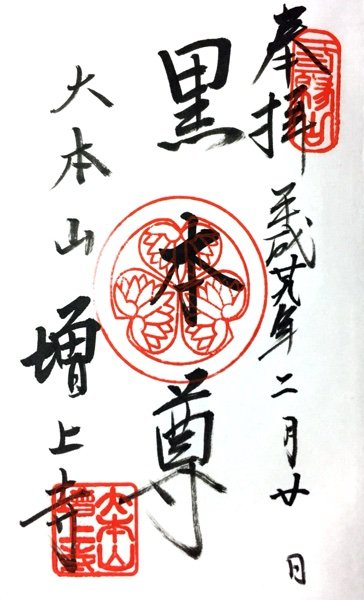 奉拝 平成廿九年二月廿日
黒本尊
大本山増上寺
三縁山
大本山増上寺